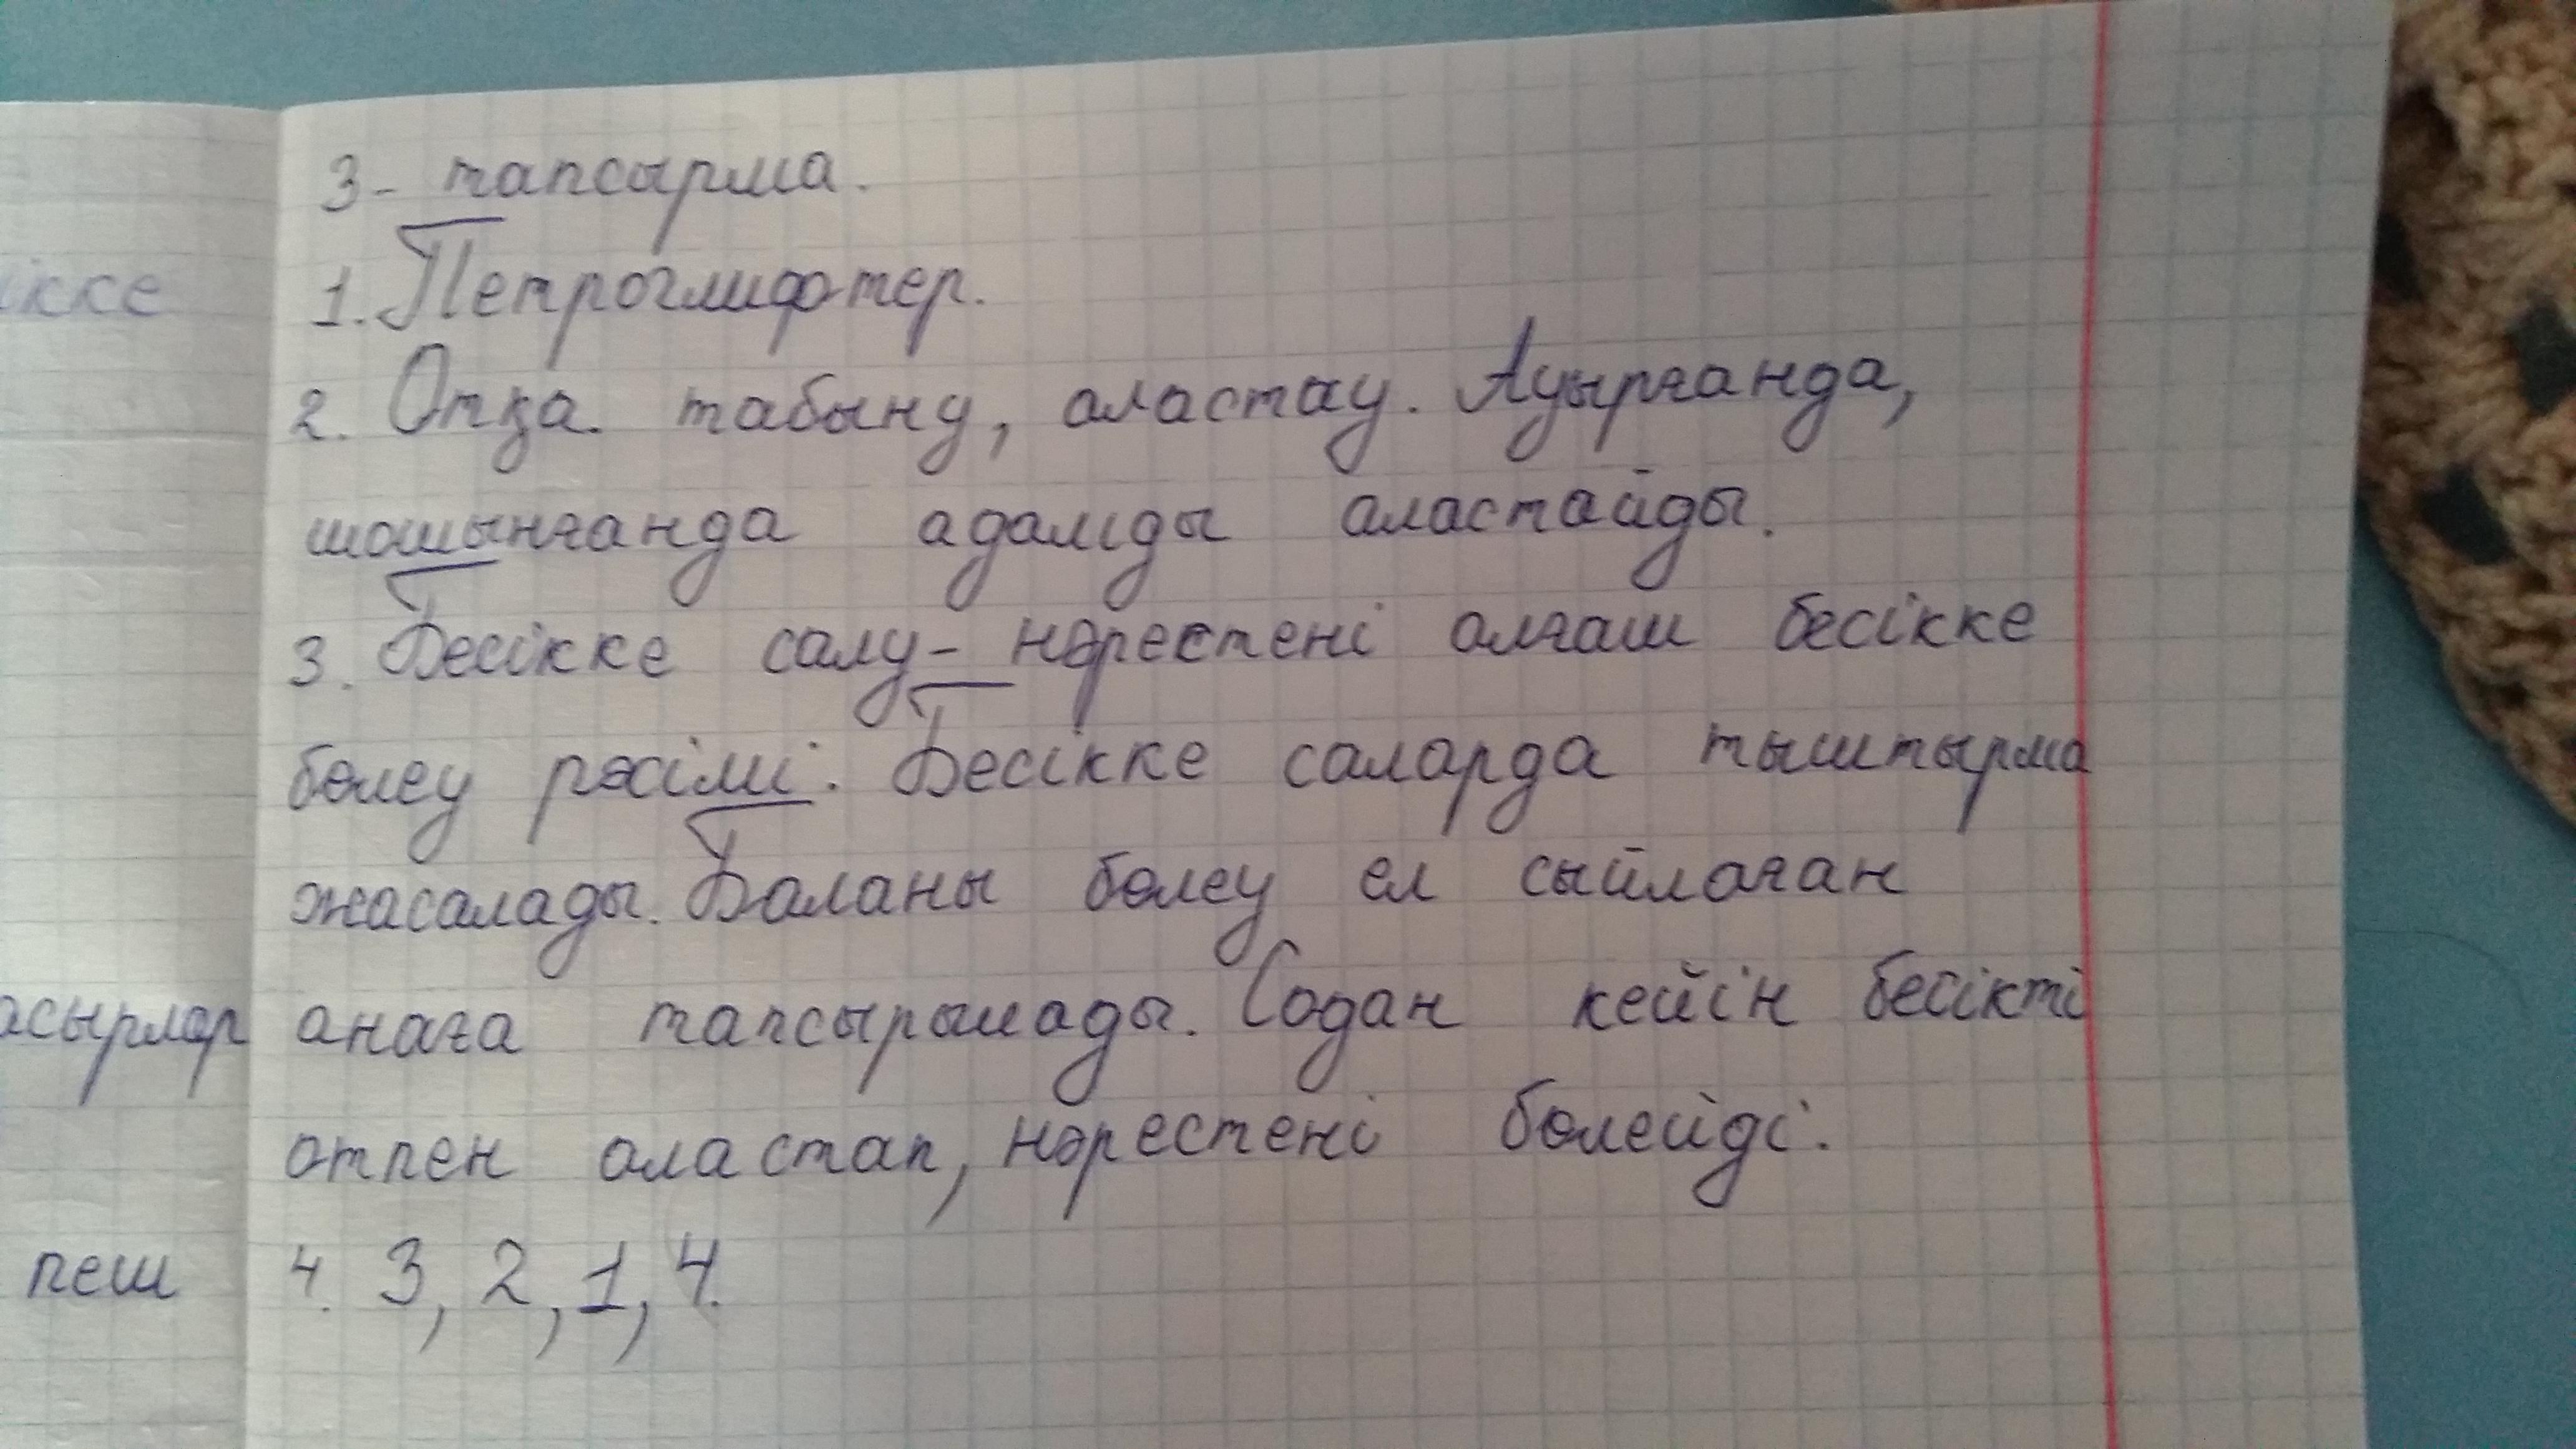 3- тапсырма.
1. Петроглифтер.
2. Отқа табыну, аластау. Ауырғанда,
шошынғанда адамды аластайды.
3. Бесікке салу - нәрестені алғаш бесікке
бөлеу рәсімі. Бесікке саларда тыштырма
жасалады. Баланы бөлеу ел сыйлаған
анаға тапсырылады. Содан кейін бесікті
отпен аластап, нәрестені бөлейді.
4. 3, 2, 1, 4.
ікке
асырлар
пеш